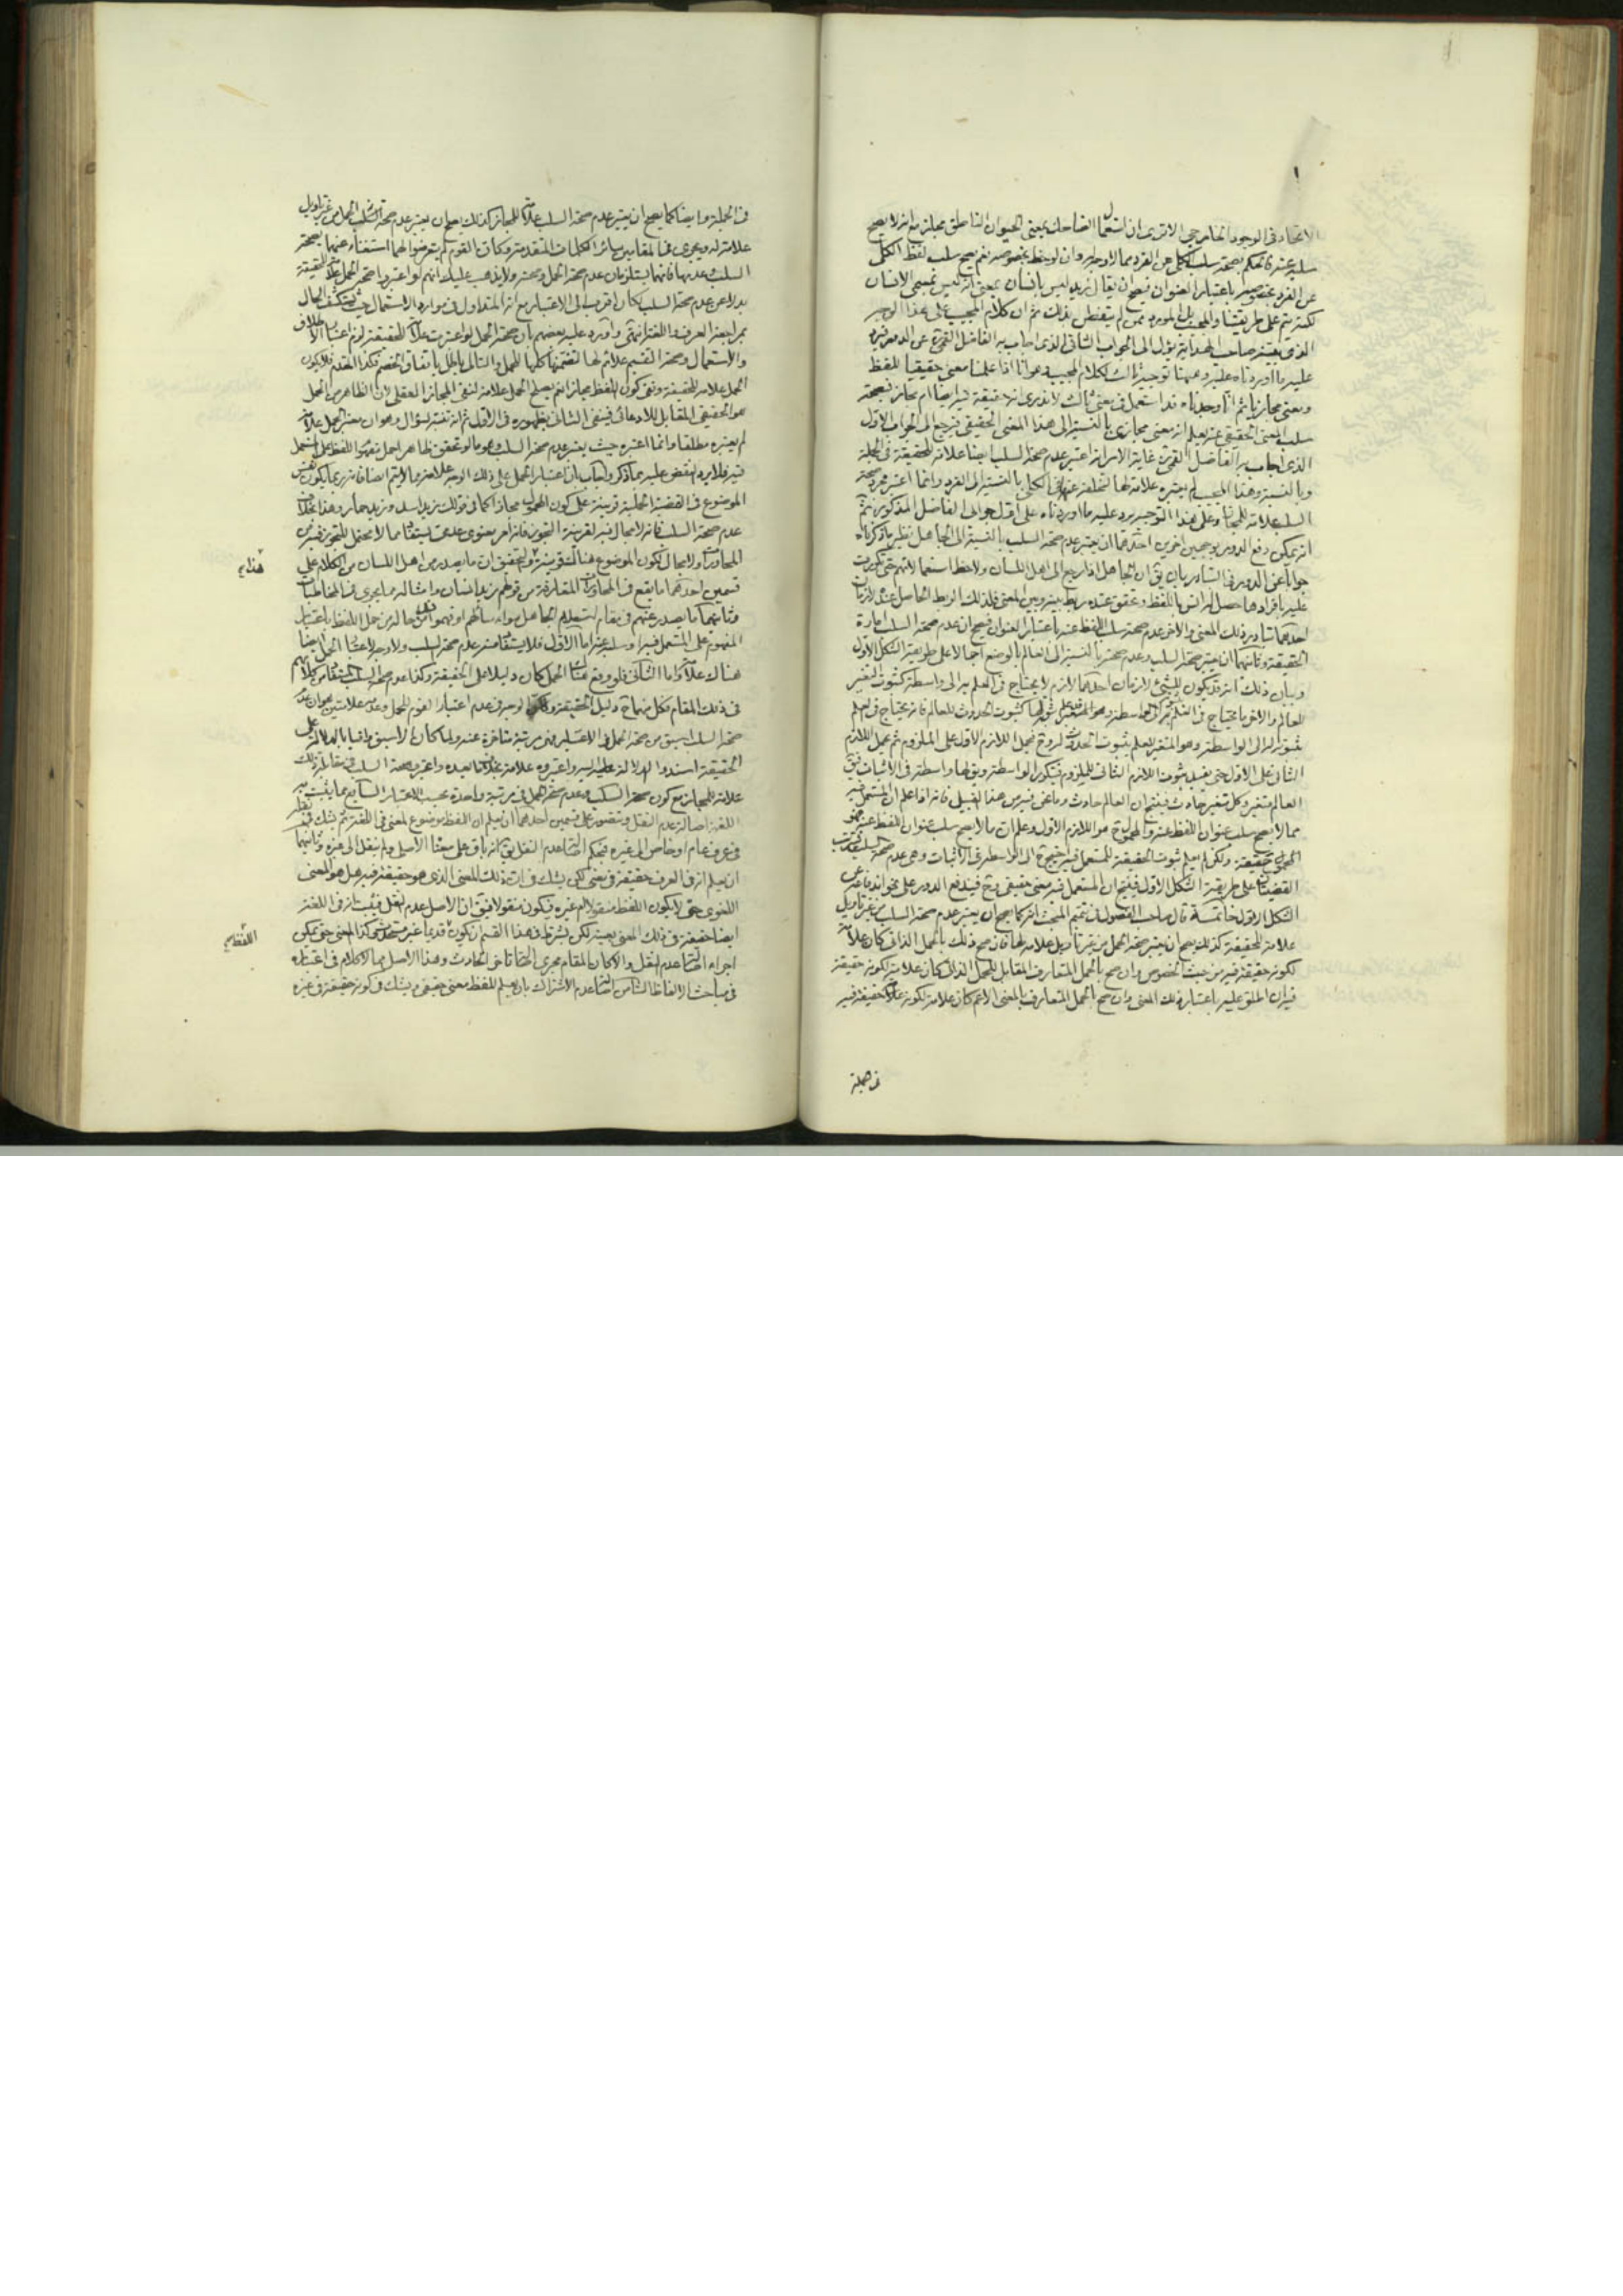 الاتحاد فى الوجود الخارجى الا ترى ان استعمال الضاحك بمعنى الحيوان الناطق مجاز مع انه لا يصح
سلبه عنه فالحكم بصحة سلب الكلى عن الفرد مما لا وجه له وان لوحظ بخصوصه نعم يصح سلب لفظ الكلى
عن الفرد بخصوصه باعتبار العنوان فيصح ان يقال زيد ليس بانسان بمعنى انه ليس بمعنى الانسان
لكنه يتم على طريقتنا والمجيب بل المورد ممن لم يتفطن بذلك ثم ان كلام المجيب على هذا الوجه
الذى يعتبره صاحب الهداية يؤل الى الجواب الثانى الذى اجاب به الفاضل القمى عن الدور فيرد
عليه ما اوردناه عليه وههنا توجيه ثالث لكلام المجيب وهو انا اذا علمنا معنى حقيقيا للفظ
ومعنى مجازيا ثم انا وجدناه قد استعمل فى معنى ثالث لا ندرى انه حقيقة فيه ايضا ام مجاز فبصحة
سلب المعنى الحقيقى عنه يعلم انه معنى مجازى بالنسبة الى هذا المعنى الحقيقى فيرجع الى الجواب الاول
الذى اجاب به الفاضل القمى غاية الامر انه اعتبر عدم صحة السلب ايضا علامة للحقيقة فى الجملة
وبالنسبة وهذا المجيب لم يعتبره علامة لها لتخلفه عنها فى الكلى بالنسبة الى الفرد وانما اعتبر مجرد صحة
السلب علامة للمجاز وعلى هذا التوجيه يرد عليه ما اوردناه على اول جوابى الفاضل المذكور ثم
انه يمكن دفع الدور بوجهين اخرين احدهما ان يعتبر عدم صحة السلب بالنسبة الى الجاهل نظير ما ذكرناه
جوابا عن الدور فى التبادر بان يق ان الجاهل اذا رجع الى اهل اللسان ولاحظ استعمالاتهم حتى تكررت
عليه بافرادها حصل له انس باللفظ وتحقق عنده ربط بينه وبين المعنى فلذلك الربط الحاصل عنده لازمان
احدهما تبادر ذلك المعنى والاخر عدم صحة سلب اللفظ عنه باعتبار العنوان فيصح ان عدم صحة السلب امارة
الحقيقة وثانيهما ان يعتبر صحة السلب وعدم صحته بالنسبة الى العالم بالوضع اجمالا على طريقة الشكل الاول
وبيان ذلك انه قد يكون للشىء لازمان احدهما لازم لا يحتاج فى العلم به الى واسطة كثبوت التغير
للعالم والاخر ما يحتاج فى العلم به الى واسطة وهو المتغير كثبوت الحدوث للعالم فانه يحتاج فى العلم
بثبوته له الى الواسطة وهو المتغير للعلم بثبوت الحدوث له وح فيحمل اللازم الاول على الملزوم ثم يحمل اللازم
الثانى على الاول حتى يفيد ثبوت اللازم الثانى للملزوم فيكون الواسطة ويق لها واسطة فى الاثبات فيق
العالم متغير وكل متغير حادث فينتج ان العالم حادث وما نحن فيه من هذا القبيل فانه اذا علم ان المستعمل فيه
مما لا يصح سلب عنوان اللفظ عنه والمحمول ح هو اللازم الاول وعلم ان ما لا يصح سلب عنوان اللفظ عنه فهو
حقيقة ولكن لم يعلم ثبوت الحقيقة للمستعمل فيه فيحتاج ح الى الواسطة فى الاثبات وهى عدم صحة السلب
القضيتان على طريقة الشكل الاول فينتج ان المستعمل فيه معنى حقيقى وح فيندفع الدور على نحو اندفاعه عن
الشكل الاول خاتمة قال صاحب الفصول فى تتميم المبحث انه كما يصح ان يعتبر عدم صحة السلب من غير تاويل
علامة للحقيقة كذلك يصح ان يعتبر صحة الحمل من غير تاويل علامة لها فان صح ذلك بالحمل الذاتى كان علامة
لكونه حقيقة فيه من حيث الخصوص وان صح بالحمل المتعارف المقابل للحمل الذاتى كان علامة لكونه حقيقة
فيه ان اطلق عليه باعتبار ذلك المعنى وان صح الحمل المتعارف بالمعنى الاعم كان علامة لكونه حقيقة فيه
فى الجملة
فى الجملة وايضا كما يصح ان يعتبر عدم صحة السلب علامة للمجاز كذلك يصح ان يعتبر عدم صحة الحمل من غير تاويل
علامة له ويجرى فى المقامين سائر الكلمات المتقدمة وكان القوم لم يتعرضوا لهما استغناء عنهما بصحة
السلب وعدمها فانهما يستلزمان عدم صحة الحمل وصحته ولا يذهب عليك انهم لو اعتبروا صحة الحمل علامة للحقيقة
بدلا عن عدم صحة السلب لكان اقرب الى الاعتبار مع انه المتداول فى موارد الاستعمال حيث يستكشف الحال
بمراجعة العرف واللغة انتهى واورد عليه بعضهم بان صحة الحمل لو اعتبرت علامة للحقيقة لزم اعتبار الاطلاق
والاستعمال وصحة التقسيم علائم لها لتضمنها كلها للحمل والتالى باطل باتفاق الخصم فكذا المقدم فلا يكون
الحمل علامة للحقيقة ونفى كون اللفظ مجازا نعم يصلح الحمل علامة لنفى المجاز العقلى لان الظاهر من الحمل
هو الحقيقى المقابل للادعائى فينفى الثانى بظهوره فى الاول ثم انه تنبه لسؤال وهو ان معتبر الحمل علامة
لم يعتبره مطلقا وانما اعتبره حيث يعتبر عدم صحة السلب وهو ما لو تحقق ظاهر الحمل مفهوم اللفظ على المستعمل
فيه فلا يرد النقض عليه بما ذكر واجاب بان اعتبار الحمل على ذلك الوجه علامة مما لا يتم ايضا فانه ربما يكون نفس
الموضوع فى القضية الحملية قرينة على كون المحمول مجازا كما فى قولك زيد اسد وزيد حمار وهذا بخلاف
عدم صحة السلب فانه لا مجال فيه لقرينة التجوز فانه امر معنوى عدمى
المحاورات ولا مجال لكون الموضوع هناك قرينة والتحقيق ان ما يصدر من اهل اللسان من الكلام على
قسمين احدهما ما يقع فى المحاورات المتعارفة من قولهم زيد انسان وامثاله مما يجرى فى المخاطبات
وثانيهما ما يصدر عنهم فى مقام استعلام الجاهل سواء سالهم او فهموا من حاله من حمل اللفظ باعتبار
المفهوم على المستعمل فيه او سلبه عنه اما الاول فلا يستفاد منه عدم صحة السلب ولا وجه لاعتبار الحمل ايضا
هناك علامة واما الثانى فلو وقع هناك الحمل كان دليلا على الحقيقة وكذا عدم صحة السلب المستفاد من كلامهم
فى ذلك المقام فكل منهما ح دليل الحقيقة ولكن الوجه فى عدم اعتبار القوم للحمل وعدم علامتين هو ان عدم
صحة السلب اسبق من صحة الحمل فى الاعتبار فهى مرتبة متاخرة عنه ولما كان الاسبق وافيا بالدلالة على
الحقيقة اسندوا الدلالة اليه واعتبروه علامة بعده واعتبر صحة السلب فى مقابلة ذلك
علامة للمجاز مع كون صحة السلب وعدم صحة الحمل فى مرتبة واحدة بحسب الاعتبار السابع مما يثبت به
اللغة اصالة عدم النقل ويتصور على قسمين احدهما ان يعلم ان اللفظ موضوع لمعنى فى اللغة ثم يشك فى نقله
فى عرف عام او خاص الى غيره فبحكم اصالة عدم النقل يق انه باق على معناه الاصلى ولم ينقل الى غيره وثانيهما
ان يعلم انه فى العرف حقيقة فى معنى لكن يشك فى ان ذلك المعنى الذى هو حقيقة فيه هل هو المعنى
اللغوى حتى لا يكون اللفظ منقولا ام غيره فيكون منقولا فيق ان الاصل عدم النقل فيثبت انه فى اللغة
ايضا حقيقة فى ذلك المعنى بعينه لكن يشترط فى هذا القسم ان يكون قديما غير مستحدث كذا المعنى حتى يمكن
اجراء اصالة عدم النقل والا كان المقام مجرى اصالة تاخر الحادث وهذا الاصل مما لا كلام فى اعتباره
فى مباحث الالفاظ الثامن اصالة عدم الاشتراك بان يعلم للفظ معنى حقيقى ويشك فى كونه حقيقة فى غيره